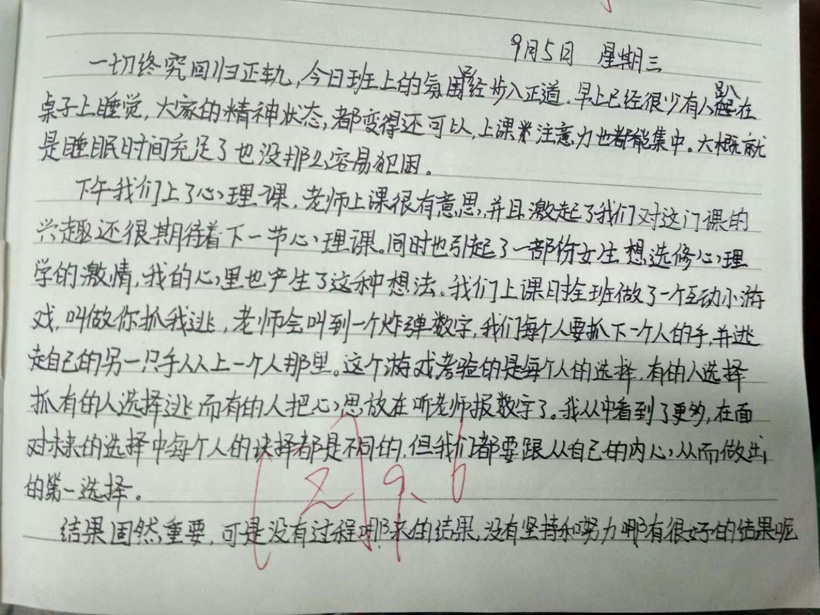 9月5日 星期三
一切终究回归正轨,今日班上的氛围已经步入正道.早上已经很少有人趴在
桌子上睡觉,大家的精神状态,都变得还可以,上课注意力也都能集中。大概就
是睡眠时间充足了也没那么容易犯困。
下午我们上了心理课,老师上课很有意思,并且激起了我们对这门课的
兴趣还很期待着下一节心理课。同时也引起了一部份女生想选修心理
学的激情,我的心里也产生了这种想法。我们上课时全班做了一个互动小游
戏,叫做你抓我逃,老师会叫到一个炸弹数字,我们每个人要抓下一个人的手,并逃
走自己的另一只手从上一个人那里。这个游戏考验的是每个人的选择.有的人选择
抓有的人选择逃而有的人把心思放在听老师报数字了。我从中看到了更多,在面
对未来的选择中每个人的抉择都是不同的,但我们都要跟从自己的内心从而做出
的第一选择。
[2] 9.6
结果固然重要,可是没有过程哪来的结果,没有坚持和努力哪有很好的结果呢